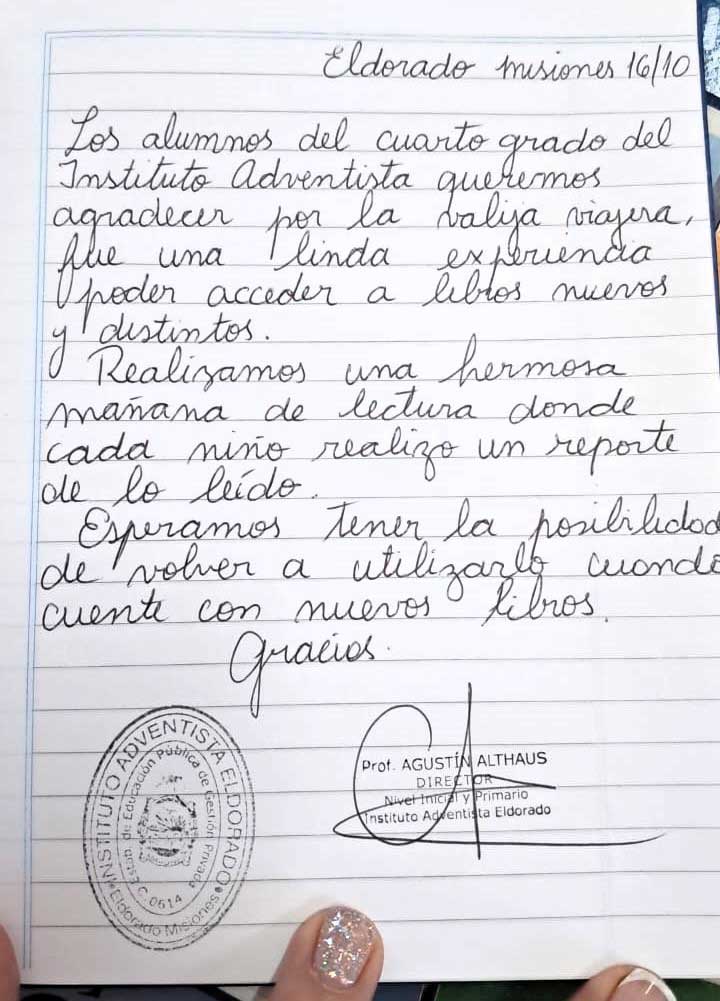 Eldorado Misiones 16/10
Los alumnos del cuarto grado del
Instituto Adventista queremos
agradecer por la valija viajera,
fue una linda experiencia
poder acceder a libros nuevos
y distintos.
Realizamos una hermosa
mañana de lectura donde
cada niño realizo un reporte
de lo leído.
Esperamos tener la posibilidad
de volver a utilizarlo cuando
cuente con nuevos libros.
Gracias.
INSTITUTO ADVENTISTA ELDORADO
Estab. de Educación Pública de Gestión Privada
C. 0614
Eldorado Misiones
Prof. AGUSTÍN ALTHAUS
DIRECTOR
Nivel Inicial y Primario
Instituto Adventista Eldorado